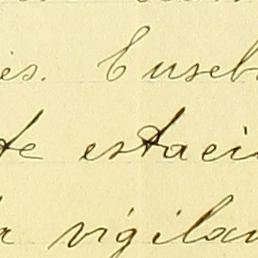 es. Euseb
te estaci
a vigilan